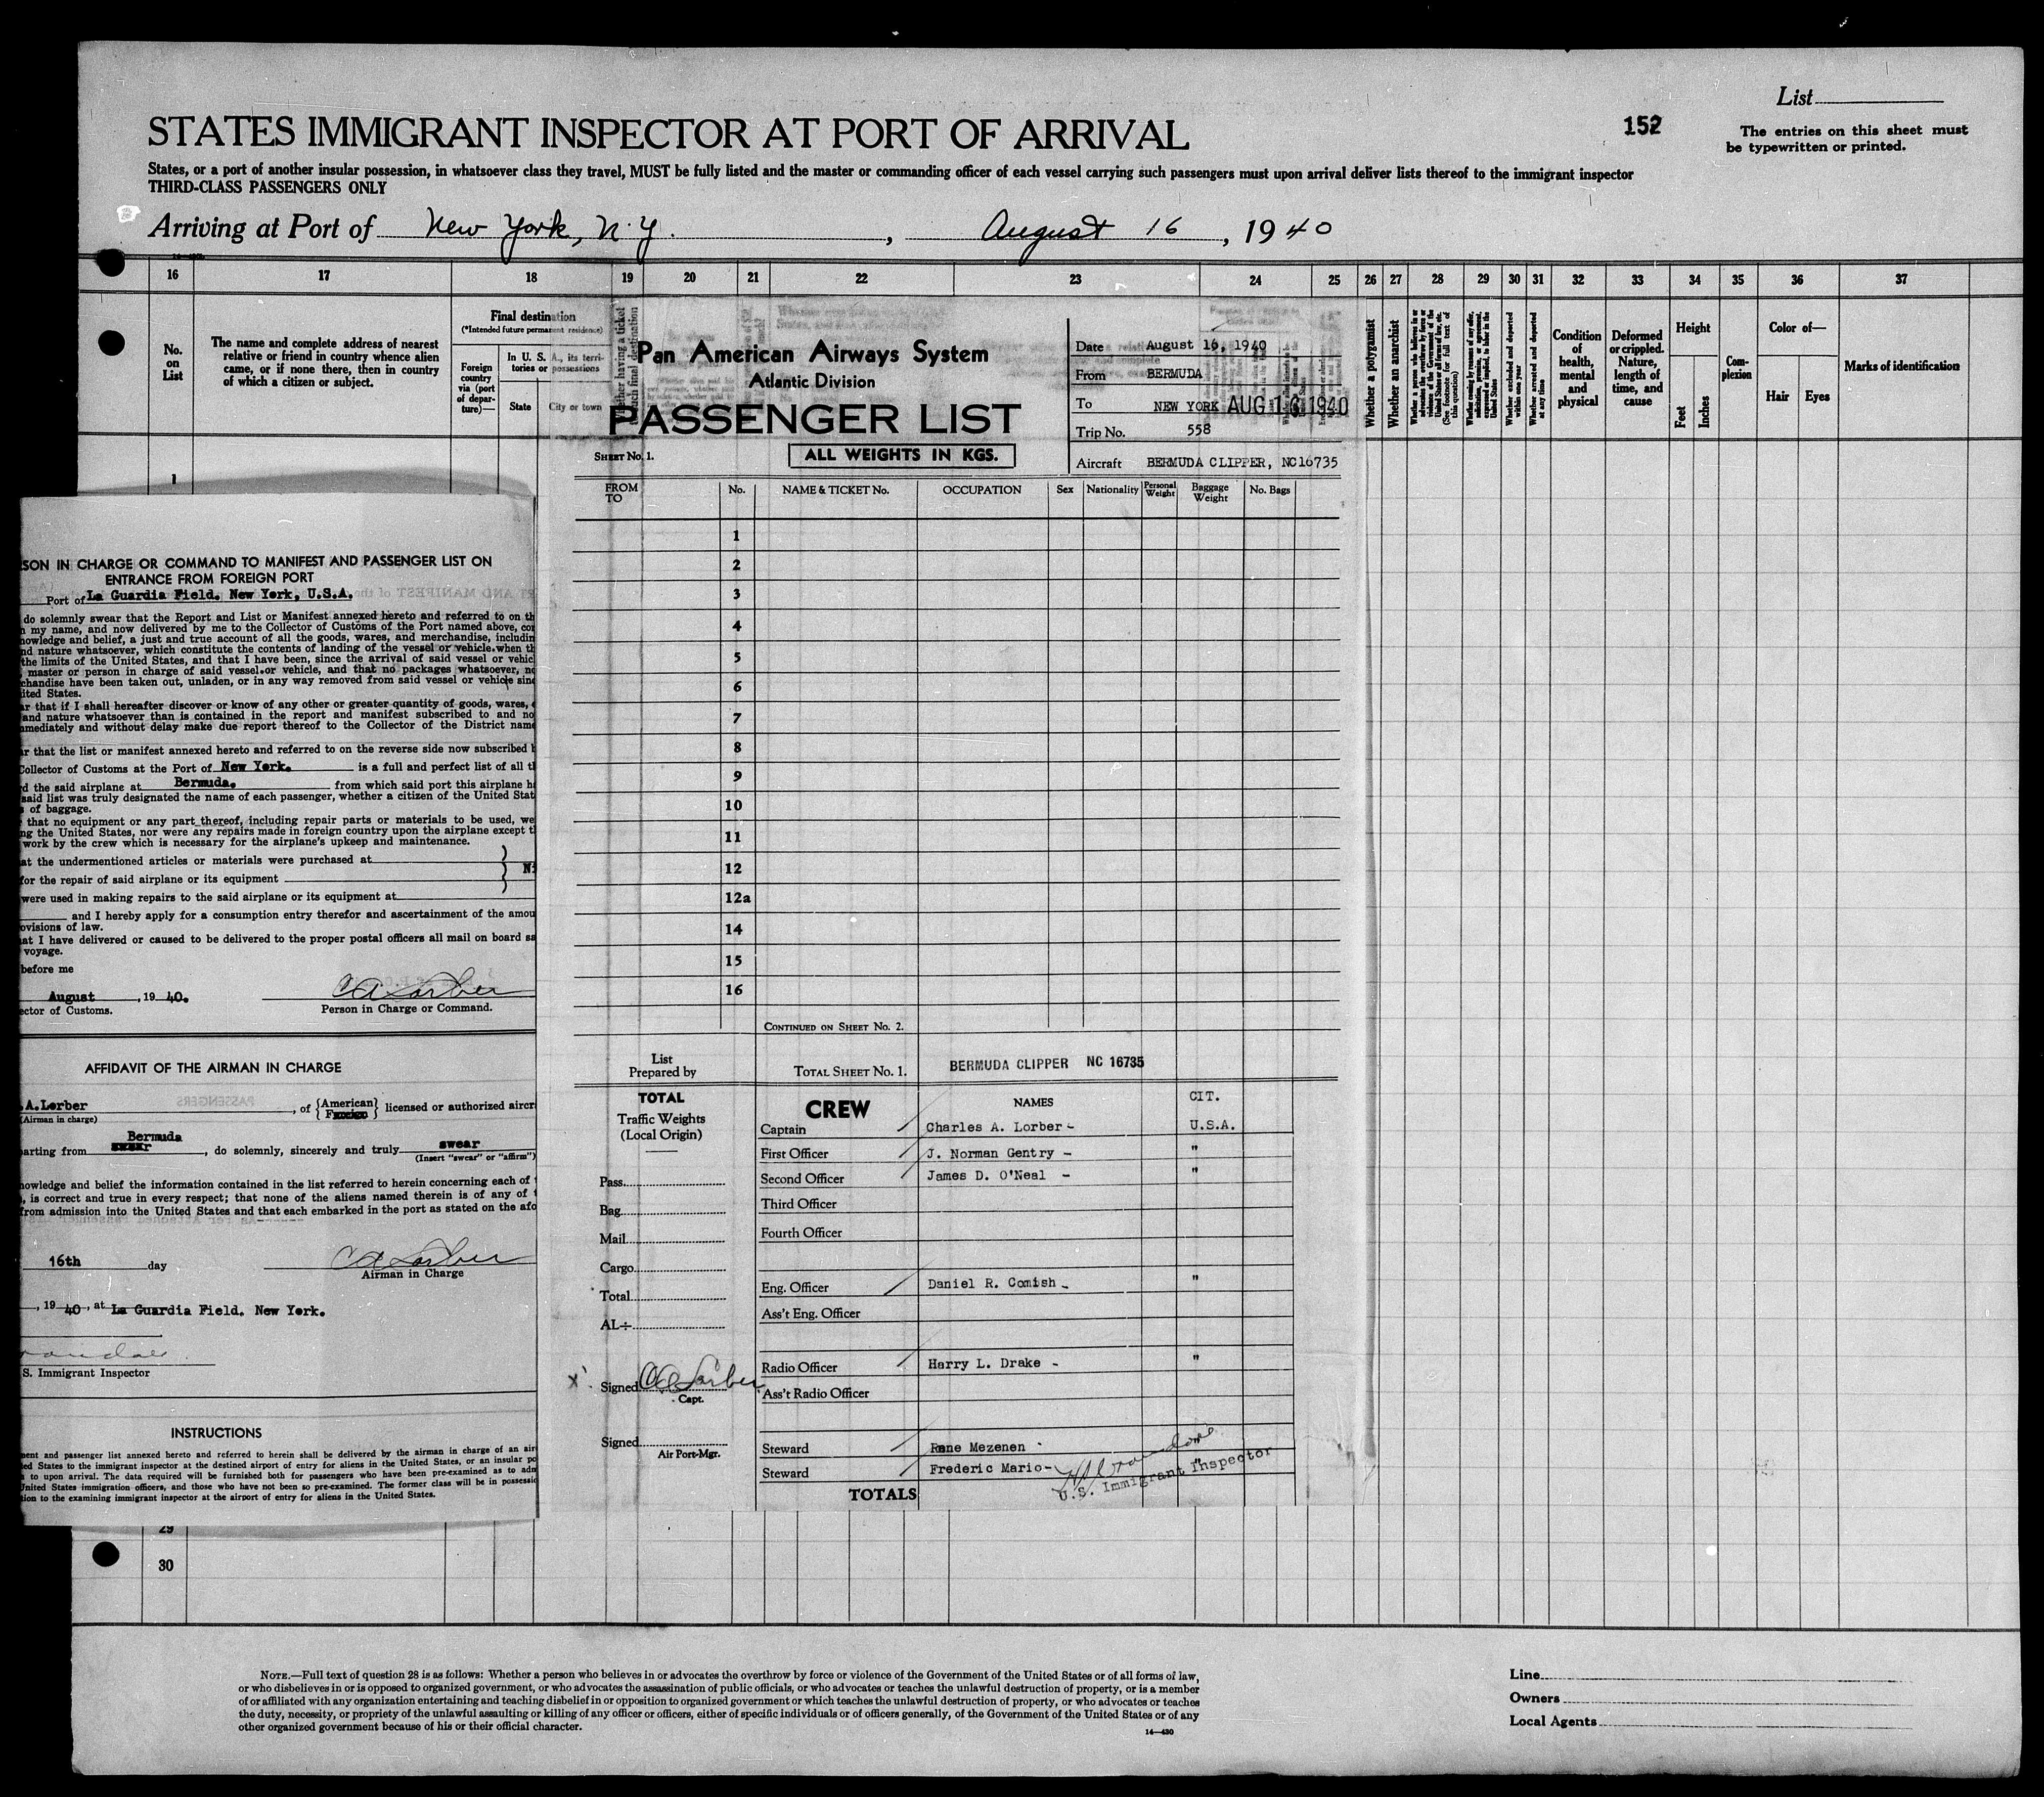 List
152
The entries on this sheet must
be typewritten or printed.
STATES IMMIGRANT INSPECTOR AT PORT OF ARRIVAL
States, or a port of another insular possession, in whatsoever class they travel, MUST be fully listed and the master or commanding officer of each vessel carrying such passengers must upon arrival deliver lists thereof to the immigrant inspector
THIRD-CLASS PASSENGERS ONLY
Arriving at Port of New York, N.Y. , August 16 , 1940
16 17 18 19 20 21 22 23 24 25 26 27 28 29 30 31 32 33 34 35 36 37
No. on List
The name and complete address of nearest
relative or friend in country whence alien
came, or if none there, then in country
of which a citizen or subject.
Final destination
(*Intended future permanent residence)
Foreign country via (port of departure)—
In U. S. A., its territories or possessions
State
City or town
Whether having a ticket to such final destination
Whether a polygamist
Whether an anarchist
Whether excluded and deported within one year
Whether arrested and deported at any time
Condition of health, mental and physical
Deformed or crippled. Nature, length of time, and cause
Height
Feet
Inches
Complexion
Color of—
Hair
Eyes
Marks of identification
1
Pan American Airways System
Atlantic Division
PASSENGER LIST
ALL WEIGHTS IN KGS.
SHEET No. 1.
Date August 16, 1940
From BERMUDA
To NEW YORK AUG 16 1940
Trip No. 558
Aircraft BERMUDA CLIPPER, NC16735
FROM TO No. NAME & TICKET No. OCCUPATION Sex Nationality Personal Weight Baggage Weight No. Bags
1
2
3
4
5
6
7
8
9
10
11
12
12a
14
15
16
CONTINUED ON SHEET No. 2.
List Prepared by
TOTAL SHEET No. 1.
BERMUDA CLIPPER NC 16735
TOTAL
Traffic Weights
(Local Origin)
Pass.
Bag.
Mail
Cargo
Total
AL÷
x Signed C A Lorber
Capt.
Signed
Air Port-Mgr.
CREW NAMES CIT.
Captain Charles A. Lorber - U.S.A.
First Officer J. Norman Gentry - "
Second Officer James D. O'Neal - "
Third Officer
Fourth Officer
Eng. Officer Daniel R. Comish - "
Ass't Eng. Officer
Radio Officer Harry L. Drake - "
Ass't Radio Officer
Steward Rene Mezenen
Steward Frederic Mario- "
U.S. Immigrant Inspector
TOTALS
SON IN CHARGE OR COMMAND TO MANIFEST AND PASSENGER LIST ON
ENTRANCE FROM FOREIGN PORT
Port of La Guardia Field. New York, U.S.A.
do solemnly swear that the Report and List or Manifest annexed hereto and referred to on th
my name, and now delivered by me to the Collector of Customs of the Port named above, con
nowledge and belief, a just and true account of all the goods, wares, and merchandise, includin
nd nature whatsoever, which constitute the contents of landing of the vessel or vehicle.when th
the limits of the United States, and that I have been, since the arrival of said vessel or vehic
master or person in charge of said vessel.or vehicle, and that no packages whatsoever, no
chandise have been taken out, unladen, or in any way removed from said vessel or vehicle sinc
ited States.
ar that if I shall hereafter discover or know of any other or greater quantity of goods, wares,
and nature whatsoever than is contained in the report and manifest subscribed to and no
mmediately and without delay make due report thereof to the Collector of the District name
ar that the list or manifest annexed hereto and referred to on the reverse side now subscribed
Collector of Customs at the Port of New York. is a full and perfect list of all t
d the said airplane at Bermuda. from which said port this airplane h
said list was truly designated the name of each passenger, whether a citizen of the United Stat
s of baggage.
that no equipment or any part thereof, including repair parts or materials to be used, we
ng the United States, nor were any repairs made in foreign country upon the airplane except t
work by the crew which is necessary for the airplane's upkeep and maintenance.
at the undermentioned articles or materials were purchased at
for the repair of said airplane or its equipment
were used in making repairs to the said airplane or its equipment at
and I hereby apply for a consumption entry therefor and ascertainment of the amou
ovisions of law.
at I have delivered or caused to be delivered to the proper postal officers all mail on board sa
voyage.
before me
August , 19 40. C A Lorber
ector of Customs. Person in Charge or Command.
AFFIDAVIT OF THE AIRMAN IN CHARGE
.A.Lorber , of {American Foreign} licensed or authorized aircr
(Airman in charge)
Bermuda
arting from swear , do solemnly, sincerely and truly swear
(Insert "swear" or "affirm")
nowledge and belief the information contained in the list referred to herein concerning each of
, is correct and true in every respect; that none of the aliens named therein is of any of
from admission into the United States and that each embarked in the port as stated on the afo
16th day C A Lorber
Airman in Charge
, 19 40 , at La Guardia Field. New York.
S. Immigrant Inspector
INSTRUCTIONS
ment and passenger list annexed hereto and referred to herein shall be delivered by the airman in charge of an air
ed States to the immigrant inspector at the destined airport of entry for aliens in the United States, or an insular po
s to upon arrival. The data required will be furnished both for passengers who have been pre-examined as to adm
United States immigration officers, and those who have not been so pre-examined. The former class will be in possessio
tion to the examining immigrant inspector at the airport of entry for aliens in the United States.
29
30
NOTE.—Full text of question 28 is as follows: Whether a person who believes in or advocates the overthrow by force or violence of the Government of the United States or of all forms of law,
or who disbelieves in or is opposed to organized government, or who advocates the assassination of public officials, or who advocates or teaches the unlawful destruction of property, or is a member
of or affiliated with any organization entertaining and teaching disbelief in or opposition to organized government or which teaches the unlawful destruction of property, or who advocates or teaches
the duty, necessity, or propriety of the unlawful assaulting or killing of any officer or officers, either of specific individuals or of officers generally, of the Government of the United States or of any
other organized government because of his or their official character.
14—430
Line
Owners
Local Agents